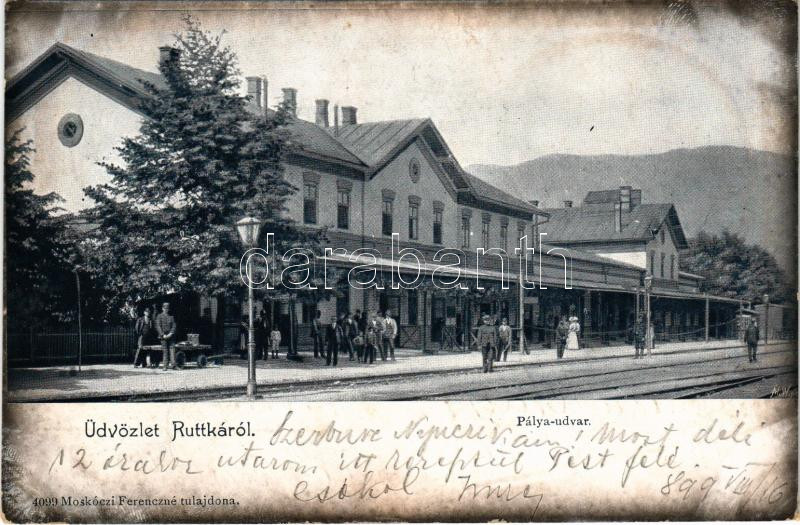 darabanth
Üdvözlet Ruttkáról.
Pálya-udvar.
Szerbuve most déli
12 órakor utazom itt Pest felé.
csókol Imre 899 VIII/16
4099 Moskóczi Ferenczné tulajdona.